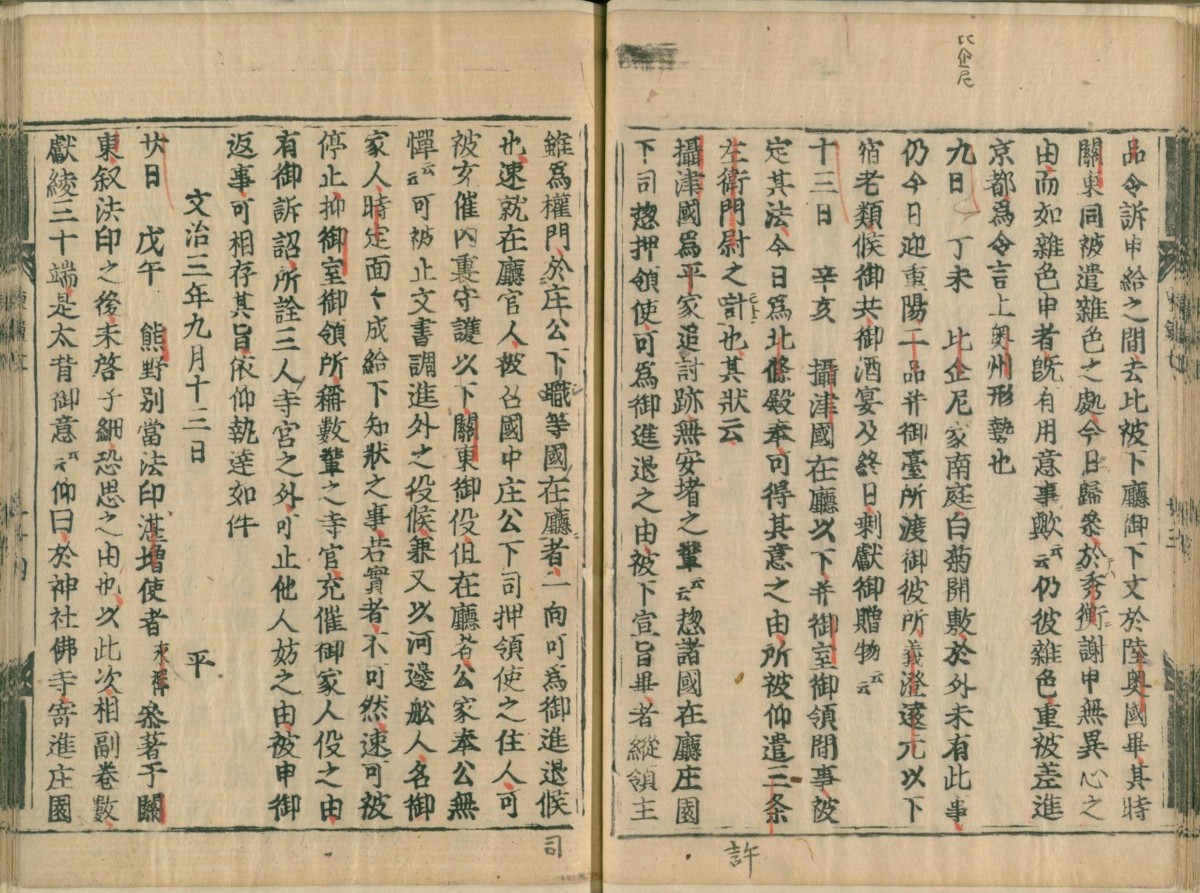 比企尼
品令訴申給之間去比被下廳御下文於陸奧國畢其時
關東同被遣雜色之處今日歸參於秀衡謝申無異心之
由而如雜色申者既有用意事歟云云仍彼雜色重被差進
京都爲令言上奥州形勢也
九日 丁未 比企尼家南庭白菊開敷於外未有此事
仍今日迎重陽二品并御臺所渡御彼所義澄遠元以下
宿老類候御共御酒宴及終日剩獻御贈物云云
十三日 辛亥 攝津國在廳以下并御室御領間事被
定其法今日爲北條殿奉可得其意之由所被仰遣三条
左衛門尉之許也其狀云
攝津國爲平家追討跡無安堵之輩云云惣諸國在廳庄園
下司惣押領使可爲御進退之由被下宣旨畢者縱領主
許
雖爲權門於庄公下職等國在廳者一向可爲御進退候
也速就在廳官人被召國中庄公下司押領使之住人可
被宛催內裏守護以下關東御役但在廳者公家奉公無
憚云云可被止文書調進外之役候兼又以河邊舩人名御
家人時定面々成給下知狀之事若實者不可然速可被
停止抑御室御領所稱數輩之寺官充催御家人役之由
有御訴訟所詮三人寺官之外可止他人妨之由被申御
返事可相存其旨依仰執達如件
文治三年九月十三日 平
廿日 戊午 熊野別當法印湛增使者永禪參著于關
東叙法印之後未啓子細恐思之由也以此次相副卷數
獻綾三十端是太背御意云云仰曰於神社佛寺寄進庄園
司